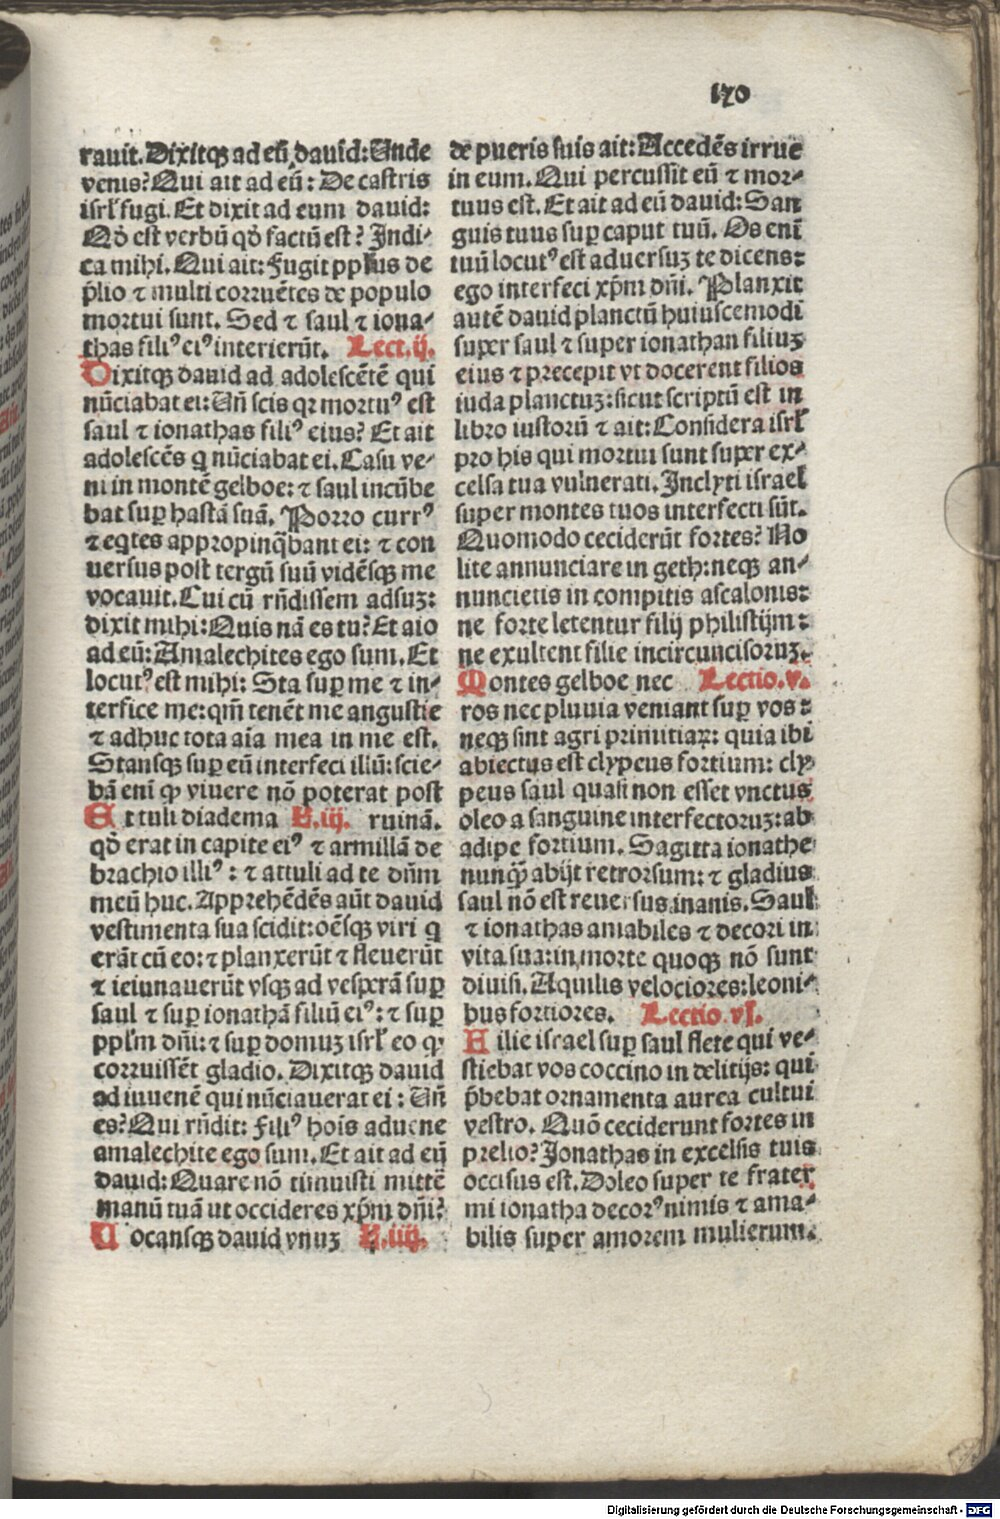 170
rauit. Dixitqꝫ ad eū dauid: Unde
venis? Qui ait ad eū: De castris
isrl̓ fugi. Et dixit ad eum dauid:
Qd̓ est verbū qd̓ factū est? Indi⸗
ca mihi. Qui ait: Fugit ppl̓us de
p̄lio ⁊ multi corruētes de populo
mortui sunt. Sed ⁊ saul ⁊ iona⸗
thas filiꝰ eiꝰ interierūt. Lect.ij.
Dixitqꝫ dauid ad adolescētē qui
nūciabat ei: Uñ scis qꝛ mortuꝰ est
saul ⁊ ionathas filiꝰ eius? Et ait
adolescēs q nūciabat ei. Casu ve⸗
ni in montē gelboe: ⁊ saul incūbe
bat suꝑ hastā suā. Porro currꝰ
⁊ eqtes appropinq̄bant ei: ⁊ con
uersus post tergū suū vidēsqꝫ me
vocauit. Cui cū rñdissem adsuꝫ:
dixit mihi: Quis nā es tu? Et aio
ad eū: Amalechites ego sum. Et
locutꝰ est mihi: Sta suꝑ me ⁊ in⸗
terfice me: qm̄ tenēt me angustie
⁊ adhuc tota aīa mea in me est.
Stansqꝫ suꝑ eū interfeci illū: scie⸗
bā eni ꝙ viuere nō poterat post
Et tuli diadema L.iij. ruinā.
qd̓ erat in capite eiꝰ ⁊ armillā de
brachio illiꝰ: ⁊ attuli ad te dn̄m
meū huc. Apprehēdēs aūt dauid
vestimenta sua scidit: oēsqꝫ viri q
erāt cū eo: ⁊ planxerūt ⁊ fleuerūt
⁊ ieiunauerūt vsqꝫ ad vesperā suꝑ
saul ⁊ suꝑ ionathā filiū eiꝰ: ⁊ suꝑ
ppl̓m dn̄i: ⁊ suꝑ domuꝫ isrl̓ eo ꝙ
corruissēt gladio. Dixitqꝫ dauid
ad iuuenē qui nūciauerat ei: Uñ
es? Qui rñdit: Filiꝰ hoīs aduene
amalechite ego sum. Et ait ad eū
dauid: Quare nō timuisti mittē
manū tuā ut occideres xp̄m dn̄i?
Uocansqꝫ dauid vnuꝫ L.iiij.
de pueris suis ait: Accedēs irrue
in eum. Qui percussit eū ⁊ mor⸗
tuus est. Et ait ad eū dauid: San
guis tuus suꝑ caput tuū. Os eni
tuū locutꝰ est aduersuꝫ te dicens:
ego interfeci xp̄m dn̄i. Planxit
autē dauid planctū huiuscemodi
super saul ⁊ super ionathan filiuꝫ
eius ⁊ precepit vt docerent filios
iuda planctuꝫ: sicut scriptū est in
libro iustorū ⁊ ait: Considera isrl̓
pro his qui mortui sunt super ex⸗
celsa tua vulnerati. Inclyti israel
super montes tuos interfecti sūt.
Quomodo ceciderūt fortes? No
lite annunciare in geth: neqꝫ an⸗
nuncietis in compitis ascalonis:
ne forte letentur filij philistijm:
ne exultent filie incircuncisoruꝫ.
Montes gelboe nec Lectio.v.
ros nec pluuia veniant suꝑ vos:
neqꝫ sint agri primitiaꝝ: quia ibi
abiectus est clypeus fortium: cly
peus saul quasi non esset vnctus
oleo a sanguine interfectoruꝫ: ab
adipe fortium. Sagitta ionathe
nunqꝫ̄ abijt retrorsum: ⁊ gladius
saul nō est reuersus inanis. Saul
⁊ ionathas amabiles ⁊ decori in
vita sua: in morte quoqꝫ nō sunt
diuisi. Aquilis velociores: leoni⸗
bus fortiores. Lectio.vj.
Filie israel suꝑ saul flete qui ve⸗
stiebat vos coccino in delitijs: qui
p̄bebat ornamenta aurea cultui
vestro. Quō ceciderunt fortes in
prelio? Jonathas in excelsis tuis
occisus est. Doleo super te frater
mi ionatha decorꝰ nimis ⁊ ama⸗
bilis super amorem mulierum.
Digitalisierung gefördert durch die Deutsche Forschungsgemeinschaft - DFG